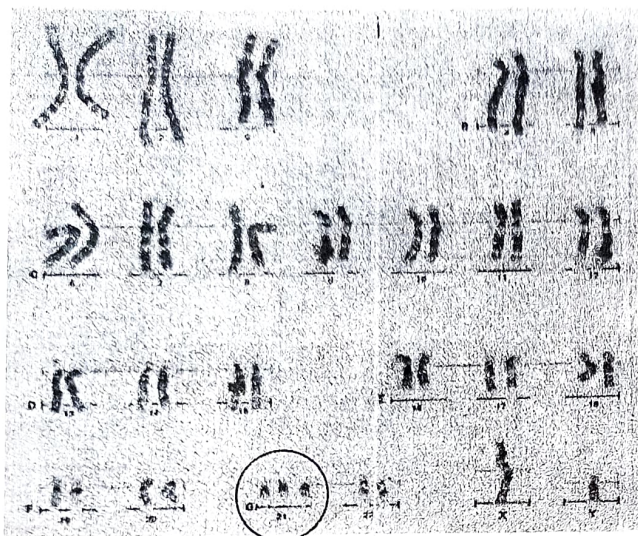 1 2 3 B 4 5
C 6 7 8 9 10 11 12
D 13 14 15 E 16 17 18
F 19 20 G 21 22 X Y